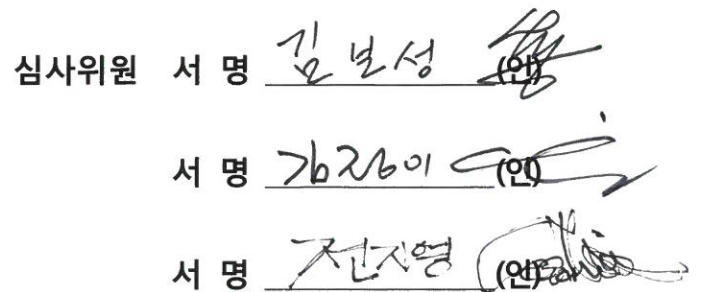 심사위원 서 명 김보성 (인)
서 명 (인)
서 명 전지영 (인)